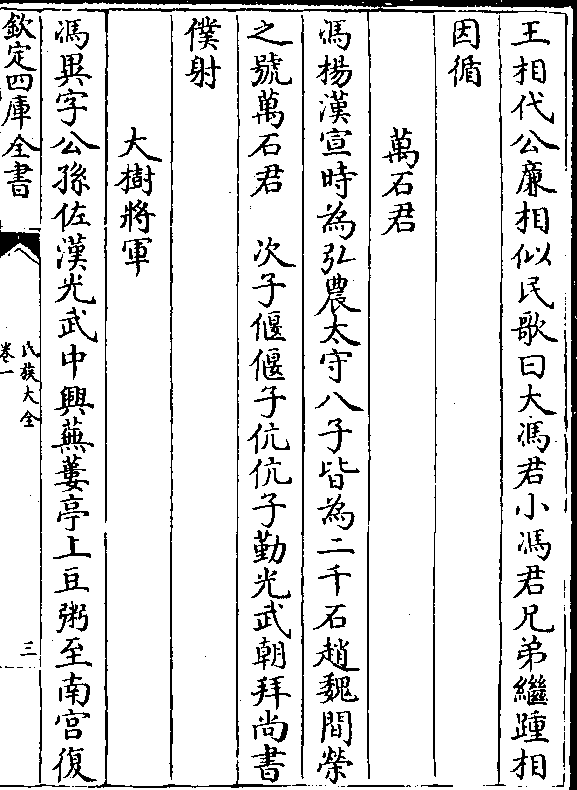 王相代公廉相似民歌曰大馮君小馮君兄弟繼踵相
因循
萬石君
馮揚漢宣時為弘農太守八子皆為二千石趙魏間榮
之號萬石君　次子偃偃子伉伉子勤光武朝拜尚書
僕射
大樹將軍
馮異字公孫佐漢光武中興蕪蔞亭上豆粥至南宮復
欽定四庫全書
氏族大全
卷一
三